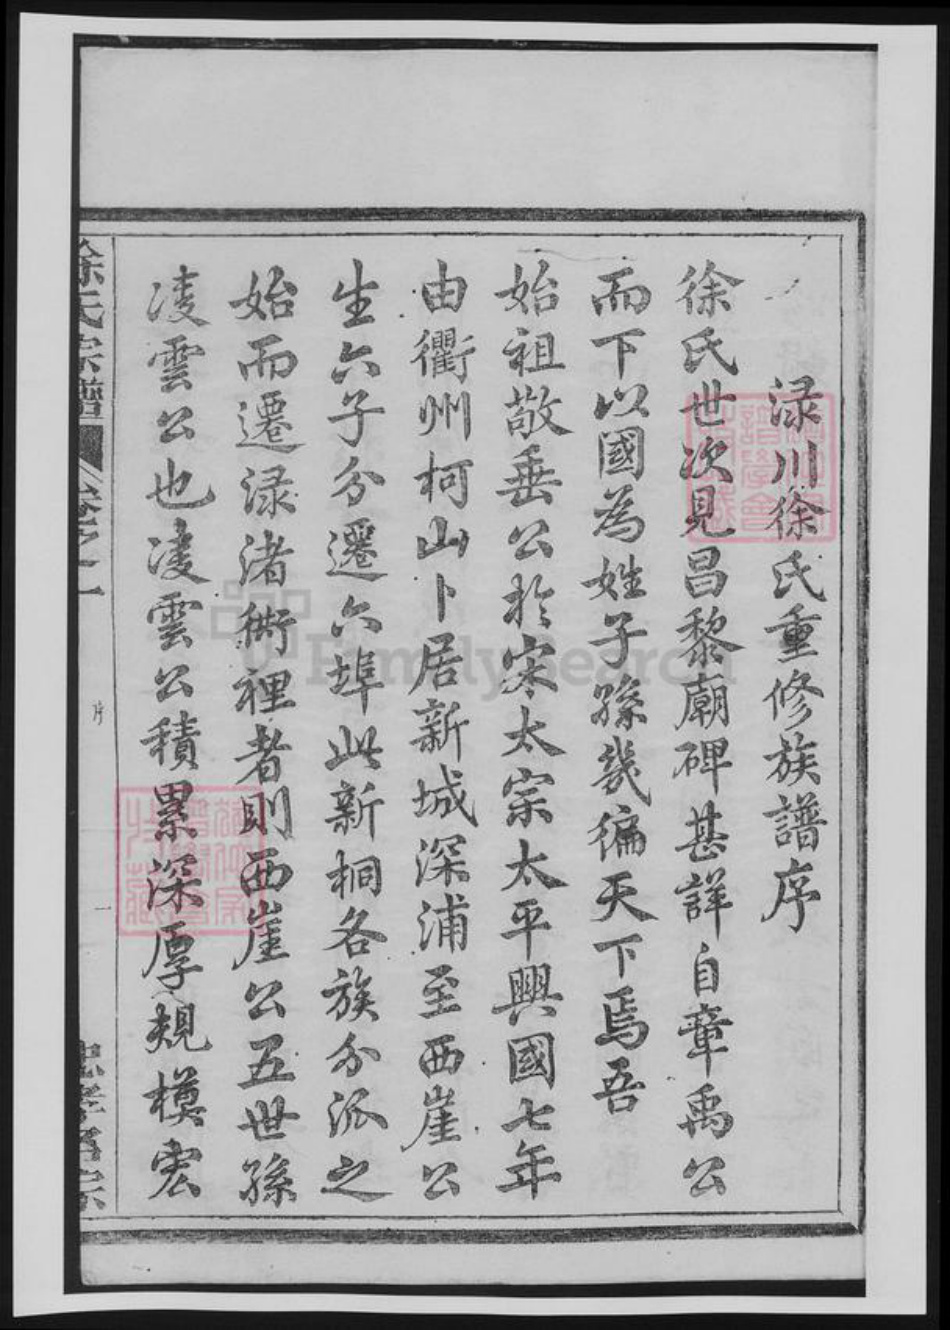 渌川徐氏重修族譜序
徐氏世次見昌黎廟碑甚詳自章禹公
而下以國為姓子孫幾徧天下焉吾
始祖敬垂公於宋太宗太平興國七年
由衢州柯山卜居新城深浦至西崖公
生六子分遷六埠此新桐各族分派之
始而遷渌渚衖裡者則西崖公五世孫
凌雲公也凌雲公積累深厚規模宏
徐氏宗譜
卷之一
序
一
忠孝名宗
FamilySearch